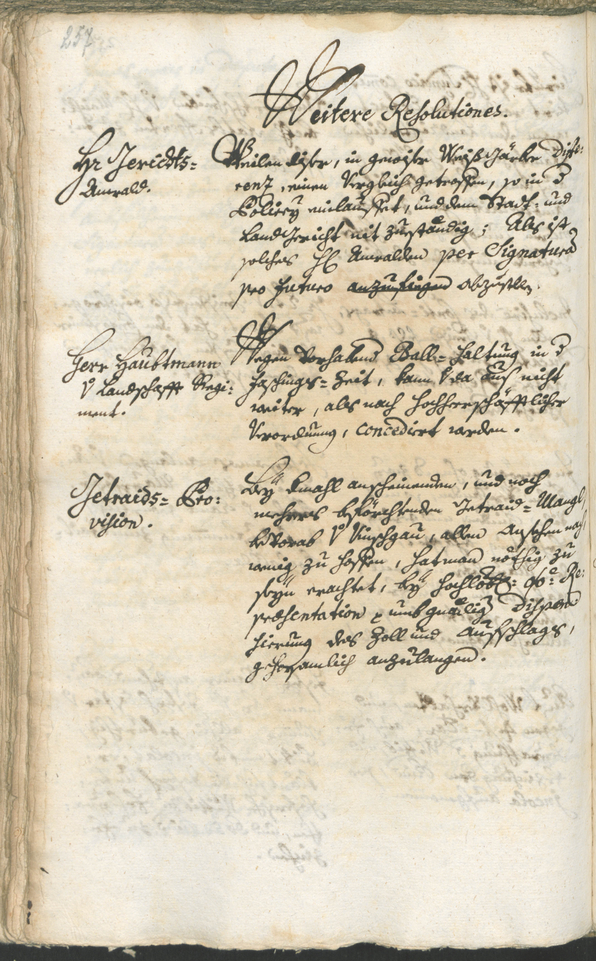 257
Weitere Resolutiones.
Hr Gerichts=
Anwald.
Weilen diser, in gewiser Weiß Järber Diffe:
renz, einen Verglich getroffen, so in d
Policey einlauffet, und dem Statt= und
Landgericht nit zuständig; Als ist
solches H Anwalden per Signatura
pro futuro anzufiegen abzustellen.
Herr Haubtmann
V Landschafft Regi:
ment.
Wegen vorhabend Ball=Haltung in d
Faschings=Zeit, kann dis Orths nicht
weiter, als nach hochherrschafftlicher
Verordnung, concediert werden.
Getraids=Pro:
vision.
Bey dermahl anscheinenden, und noch
mehrers beförchtenden Getraid=Mangl,
bevorab V Vinschgau, allem Ansehen nach
wenig zu hoffen, hat man nöthig zu
seyn erachtet, bey hochlöbl: Re:
præsentation umb gnädige Dispen
sierung des Zoll und Aufschlags,
gehorsamlich anzulangen.